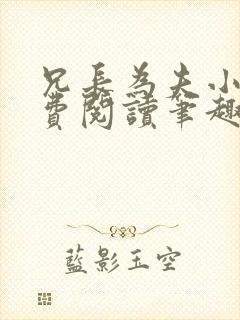 兄長為夫小
費閱讀筆趣
藍影玉空